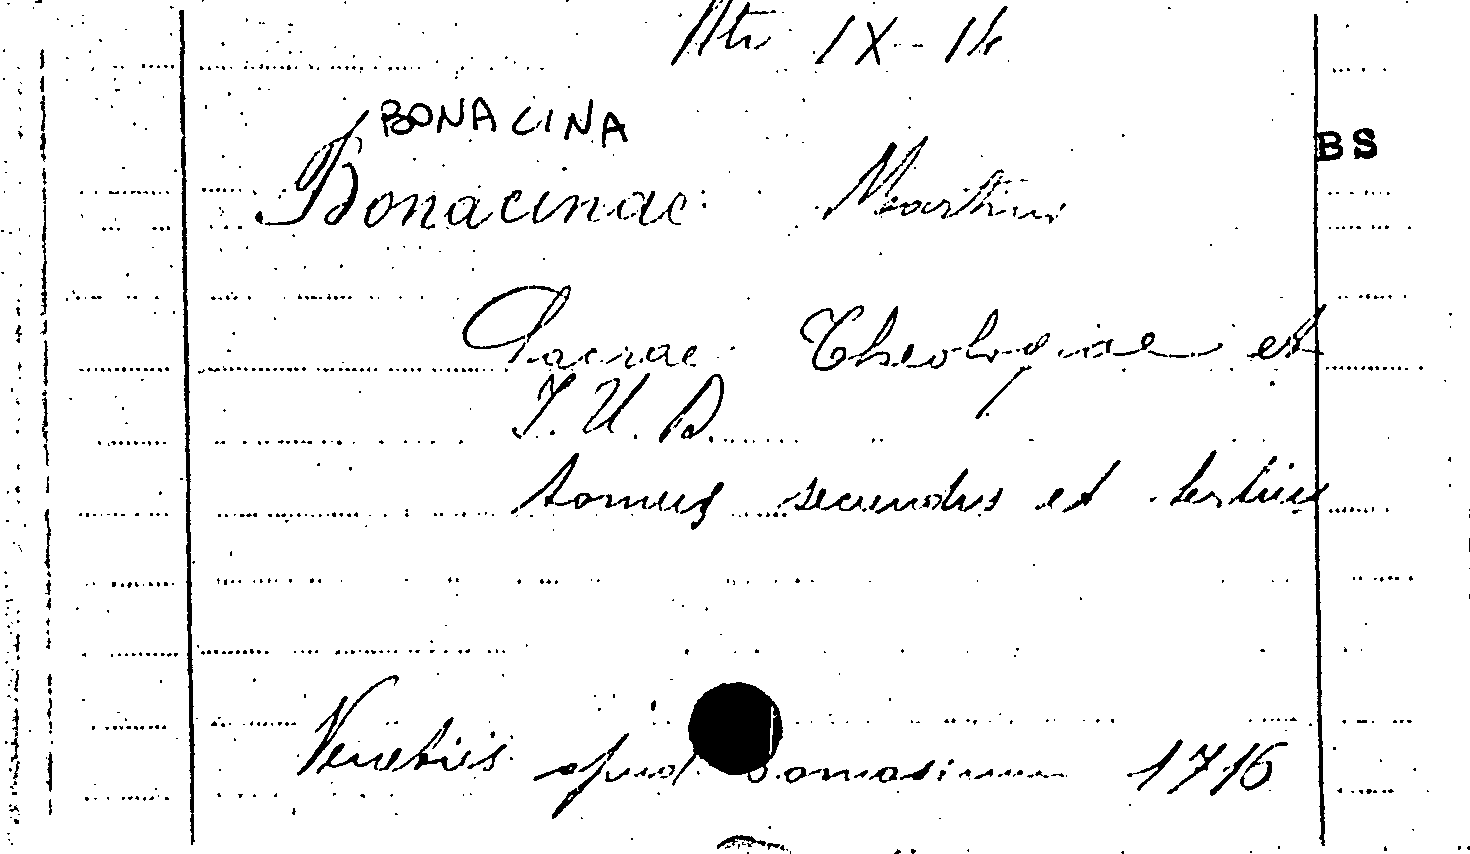 Atr IX-14
BONACINA
BS
Bonacinae Martini
Sacrae Theologiae et
I. U. D.
tomus secundus et tertius
Venetiis apud 1716